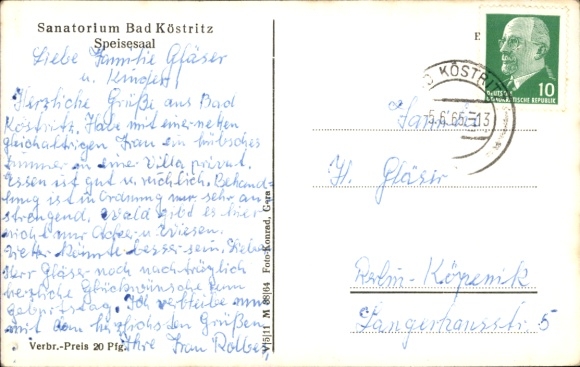 Sanatorium Bad Köstritz
Speisesaal
Liebe Familie Gläser
u. Kinder!
Herzliche Grüße aus Bad
Köstritz. Habe mit einer netten
gleichaltrigen Frau ein hübsches
Zimmer in eine Villa privat.
Essen ist gut u. reichlich. Behand-
lung ist in Ordnung nur sehr an
strengend. Wald gibt es hier
nicht nur Äcker u. Wiesen.
könnte besser sein. Lieber
Herr Gläser noch nachträglich
herzliche Glückwünsche zum
Geburtstag. Ich verbleibe nun
mit den herzlichsden Grüßen
Ihre Frau
Verbr.-Preis 20 Pfg.
V/5/11 M 88/64 Foto-Konrad, Gera
E
KÖSTRITZ
5.6.65-13
10
DEUTSCHE
DEMOKRATISCHE REPUBLIK
Familie
H. Gläser
Berlin-Köpenik
Langerhansstr. 5